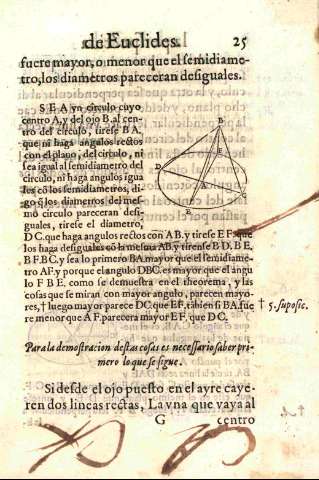 de Euclides. 25
fuere mayor, o menor que el semidiame-
tro, los diametros pareceran desiguales.
SEA vn circulo cuyo
centro A, y del ojo B, al cen-
tro del circulo, tirese BA,
que ni haga angulos rectos
con el plano, del circulo, ni
sea igual al semidiametro del
circulo, ni haga angulos igua
les cõ los semidiametros, di-
go q̃ los diametros del mes-
mo circulo pareceran desi-
guales, tirese el diametro,
DC. que haga angulos rectos con AB. y tirese EF. que
los haga desiguales cõ la mesma AB. y tirense BD. BE,
BF. BC. y sea lo primero BA. mayor que el semidiame-
tro AF. y porque el angulo DBC. es mayor que el angu
lo FBE. como se demuestra en el theorema, y las
cosas que se miran con mayor angulo, parecen mayo-
res, † luego mayor parece DC. que EF. tãbien si BA. fue
re menor que AF. parecera mayor EF, que DC.
† 5. suposic.
Para la demostracion destas cosas es necessario saber pri-
mero lo que se sigue.
Si desde el ojo puesto en el ayre caye-
ren dos lineas rectas, La vna que vaya al
G centro
B
E
A
C
F